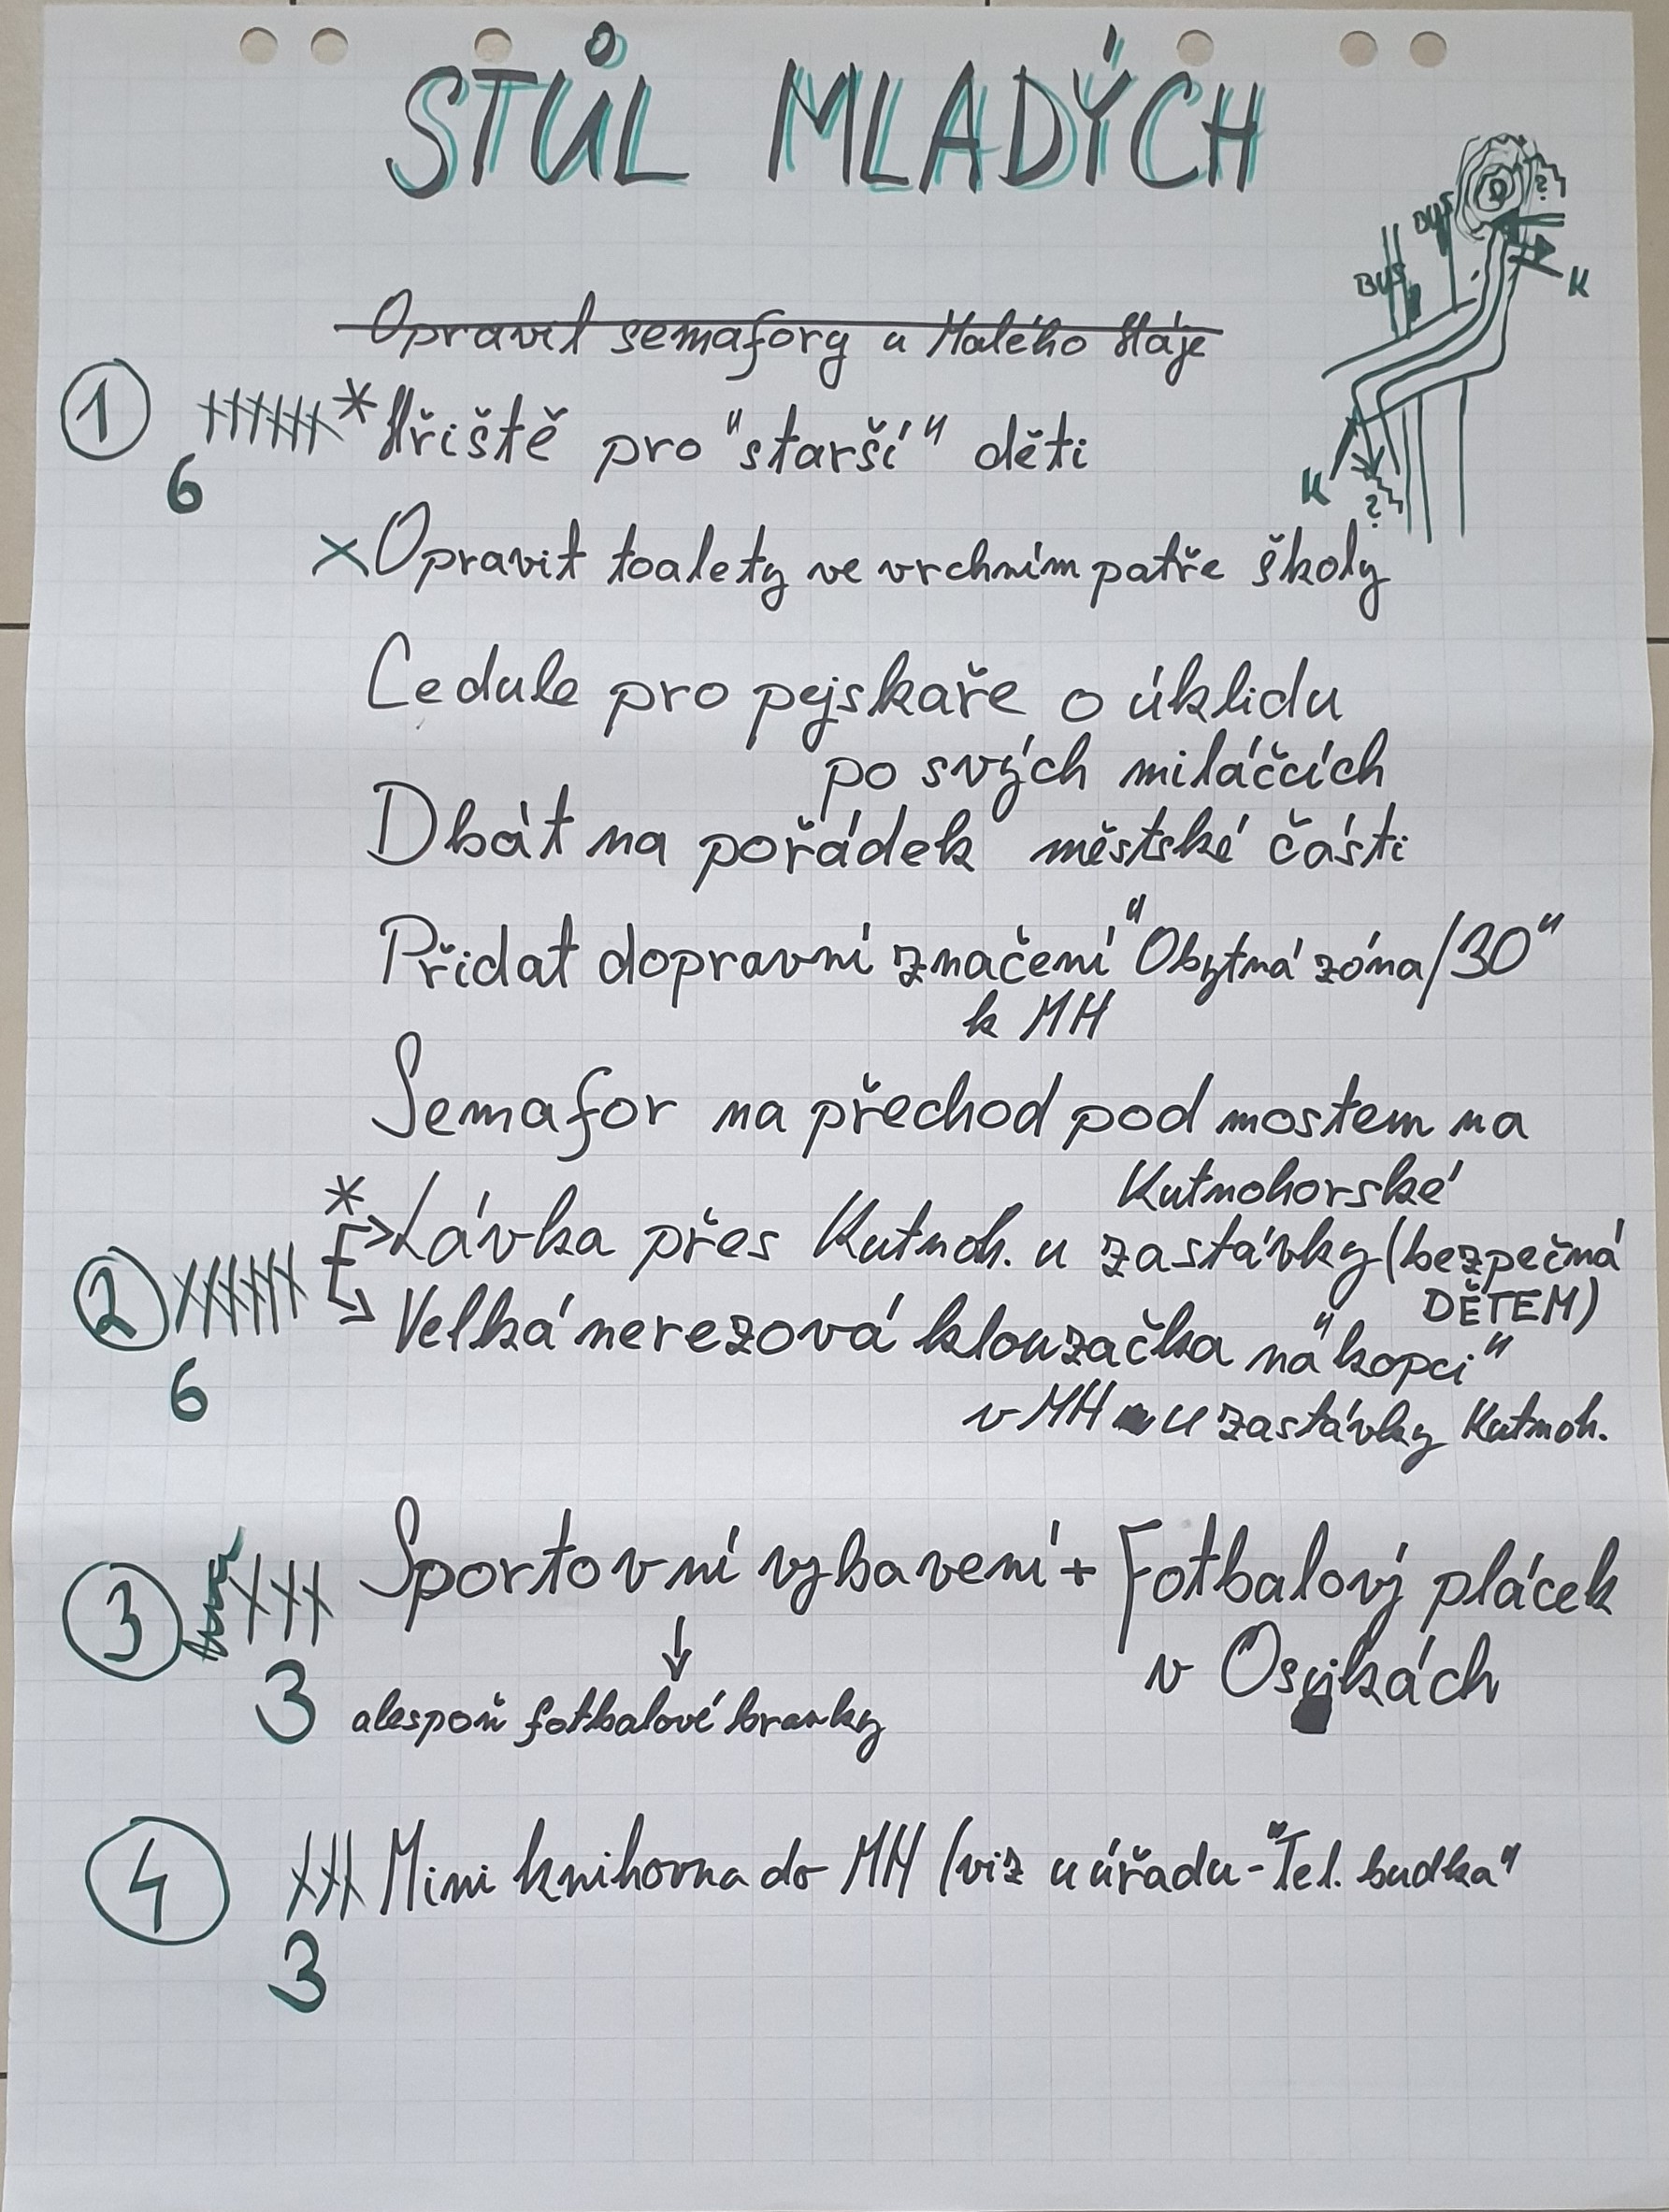 STŮL MLADÝCH
BUS
BUS
?
K
Opravit semafory u Malého Háje
1 * Hřiště pro "starší" děti
6
K
?
× Opravit toalety ve vrchním patře školy
Cedule pro pejskaře o úklidu
po svých miláčcích
Dbát na pořádek městské části
Přidat dopravní značení "Obytná zóna/30"
k MH
Semafor na přechod pod mostem na
Kutnohorské
* Lávka přes Kutnoh. u zastávky (bezpečná
DĚTEM)
2
Velká nerezová klouzačka na "kopci"
6
v MH u zastávky Kutnoh.
3 Sportovní vybavení + Fotbalový plácek
v Osikách
3 alespoň fotbalové branky
4 Mini knihovna do MH (viz u úřadu - "Tel. budka"
3